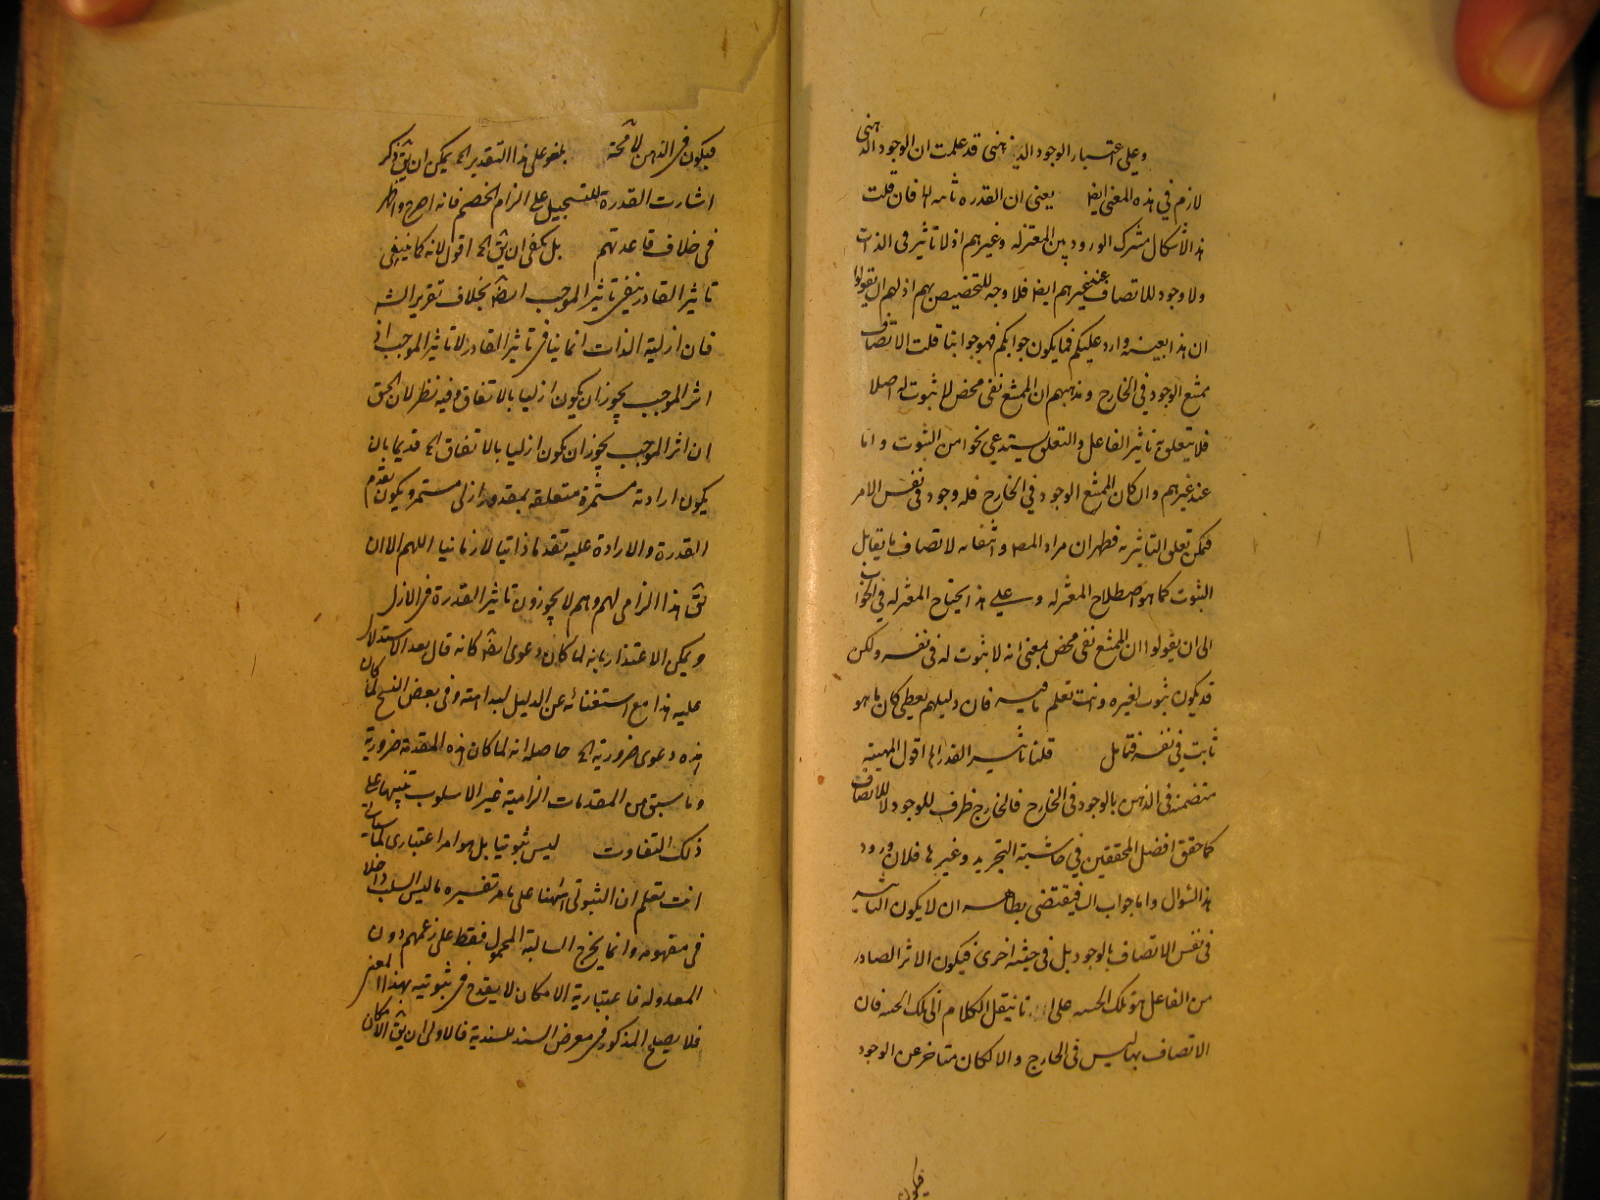 وعلى اعتبار الوجود الذهنى قد علمت ان الوجود الذهنى
لازم في هذه المعنى ايضا يعنى ان القدرة ثابته الخ فان قلت
هذا الاشكال مشترك الورود بين المعتزله وغيرهم اذ لا تاثير فى الذات
ولا وجود للاتصاف عند غيرهم ايضا فلا وجه للتخصيص بهم اذ لهم ان يقولوا
ان هذا بعينه وارد عليكم فما يكون جوابكم فهو جوابنا قلت الاتصاف
ممتنع الوجود في الخارج ومذهبهم ان الممتنع نفى محض لا ثبوت له اصلا
فلا يتعلق به تاثير الفاعل والتعلق يستدعى نحوا من الثبوت واما
عند غيرهم وان كان الممتنع الوجود في الخارج فله وجود في نفس الامر
فيمكن تعلق التاثير به فظهر ان مراد المص وانتفائه لاتصاف ما يقابل
الثبوت كما هو اصطلاح المعتزله وعلى هذا يحتاج المعتزله في الجواب
الى ان يقولوا ان الممتنع نفى محض بمعنى انه لا ثبوت له في نفسه ولكن
قد يكون ثبوت لغيره وانت تعلم ما فيه فان دليلهم يعطى كان ما هو
ثابت في نفسه فتامل قلنا تاثير القدرة الخ اقول المهية
متضمنة في الذهن بالوجود فى الخارج فالخارج ظرف للوجود لا للاتصاف
كما حقق افضل المحققين في حاشية التجريد وغيرها فلان ورود
هذا السوال واما جواب الش فيقتضى بظاهره ان لا يكون التاثير
فى نفس الاتصاف بالوجود بل فى حيثية اخرى فيكون الاثر الصادر
من الفاعل هو تلك الحيثية على انا ننقل الكلام الى تلك الحيثية فان
الاتصاف بها ليس فى الخارج والا لكان متاخر عن الوجود
فيكون
فيكون فى الذهن لا محة بلغو على هذا التقدير الخ يمكن ان يق ذكر
اشارت القدرة للتسجيل على الزام الخصم فانه اصرح واظهر
فى خلاف قاعدتهم بل يكفى ان يق الخ اقول لانه كما ينفى
تاثير القادر ينفى تاثير الموجب ايضا بخلاف تقرير الش
فان ازلية الذات انما ينافى تاثير القادر لا تاثير الموجب اذ
اثر الموجب يجوز ان يكون ازليا بالاتفاق وفيه نظر لان الحق
ان اثر الموجب يجوز ان يكون ازليا بالاتفاق الخ قديما بان
يكون ارادته مستمرة متعلقة بمقدور ازلى مستمر ويكون تقدم
القدرة والارادة عليه تقدما ذاتيا لا زمانيا اللهم الا ان
يق هذا الزامى لهم وهم لا يجوزون تاثير القدرة فى الازل
ويمكن الاعتذار بانه لما كان دعوى ايضا كانه قال بعد الاستدلال
عليه هذا مع استغنائه عن الدليل لبداهته وفى بعض النسخ لما كان
هذه دعوى ضرورية الخ حاصله انه لما كان هذه المقدمة ضرورية
وما سبق من المقدمات الزامية غير الاسلوب تنبيها على
ذلك التفاوت ليس ثبوتيا بل هو امر اعتبارى
انت تعلم ان الثبوتى ههنا على ما مر تفسيره ما ليس السلب داخلا
فى مفهومه وانما يخرج السالبة المحمول فقط على زعمهم دون
المعدوله فاعتبارية الامكان لا يقدح فى ثبوتيه بهذا المعنى
فلا يصلح المذكور فى معرض السند للسندية فالاولى ان يق الامكان